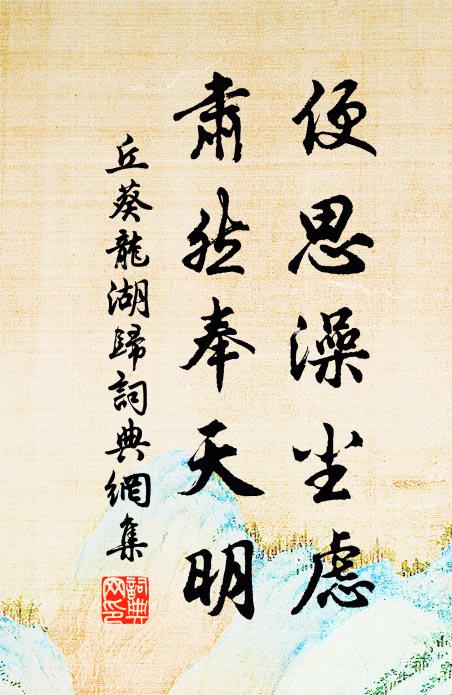 便思澡尘虑
肅然奉天明
丘葵龍湖歸詞典網集
詞典
网印